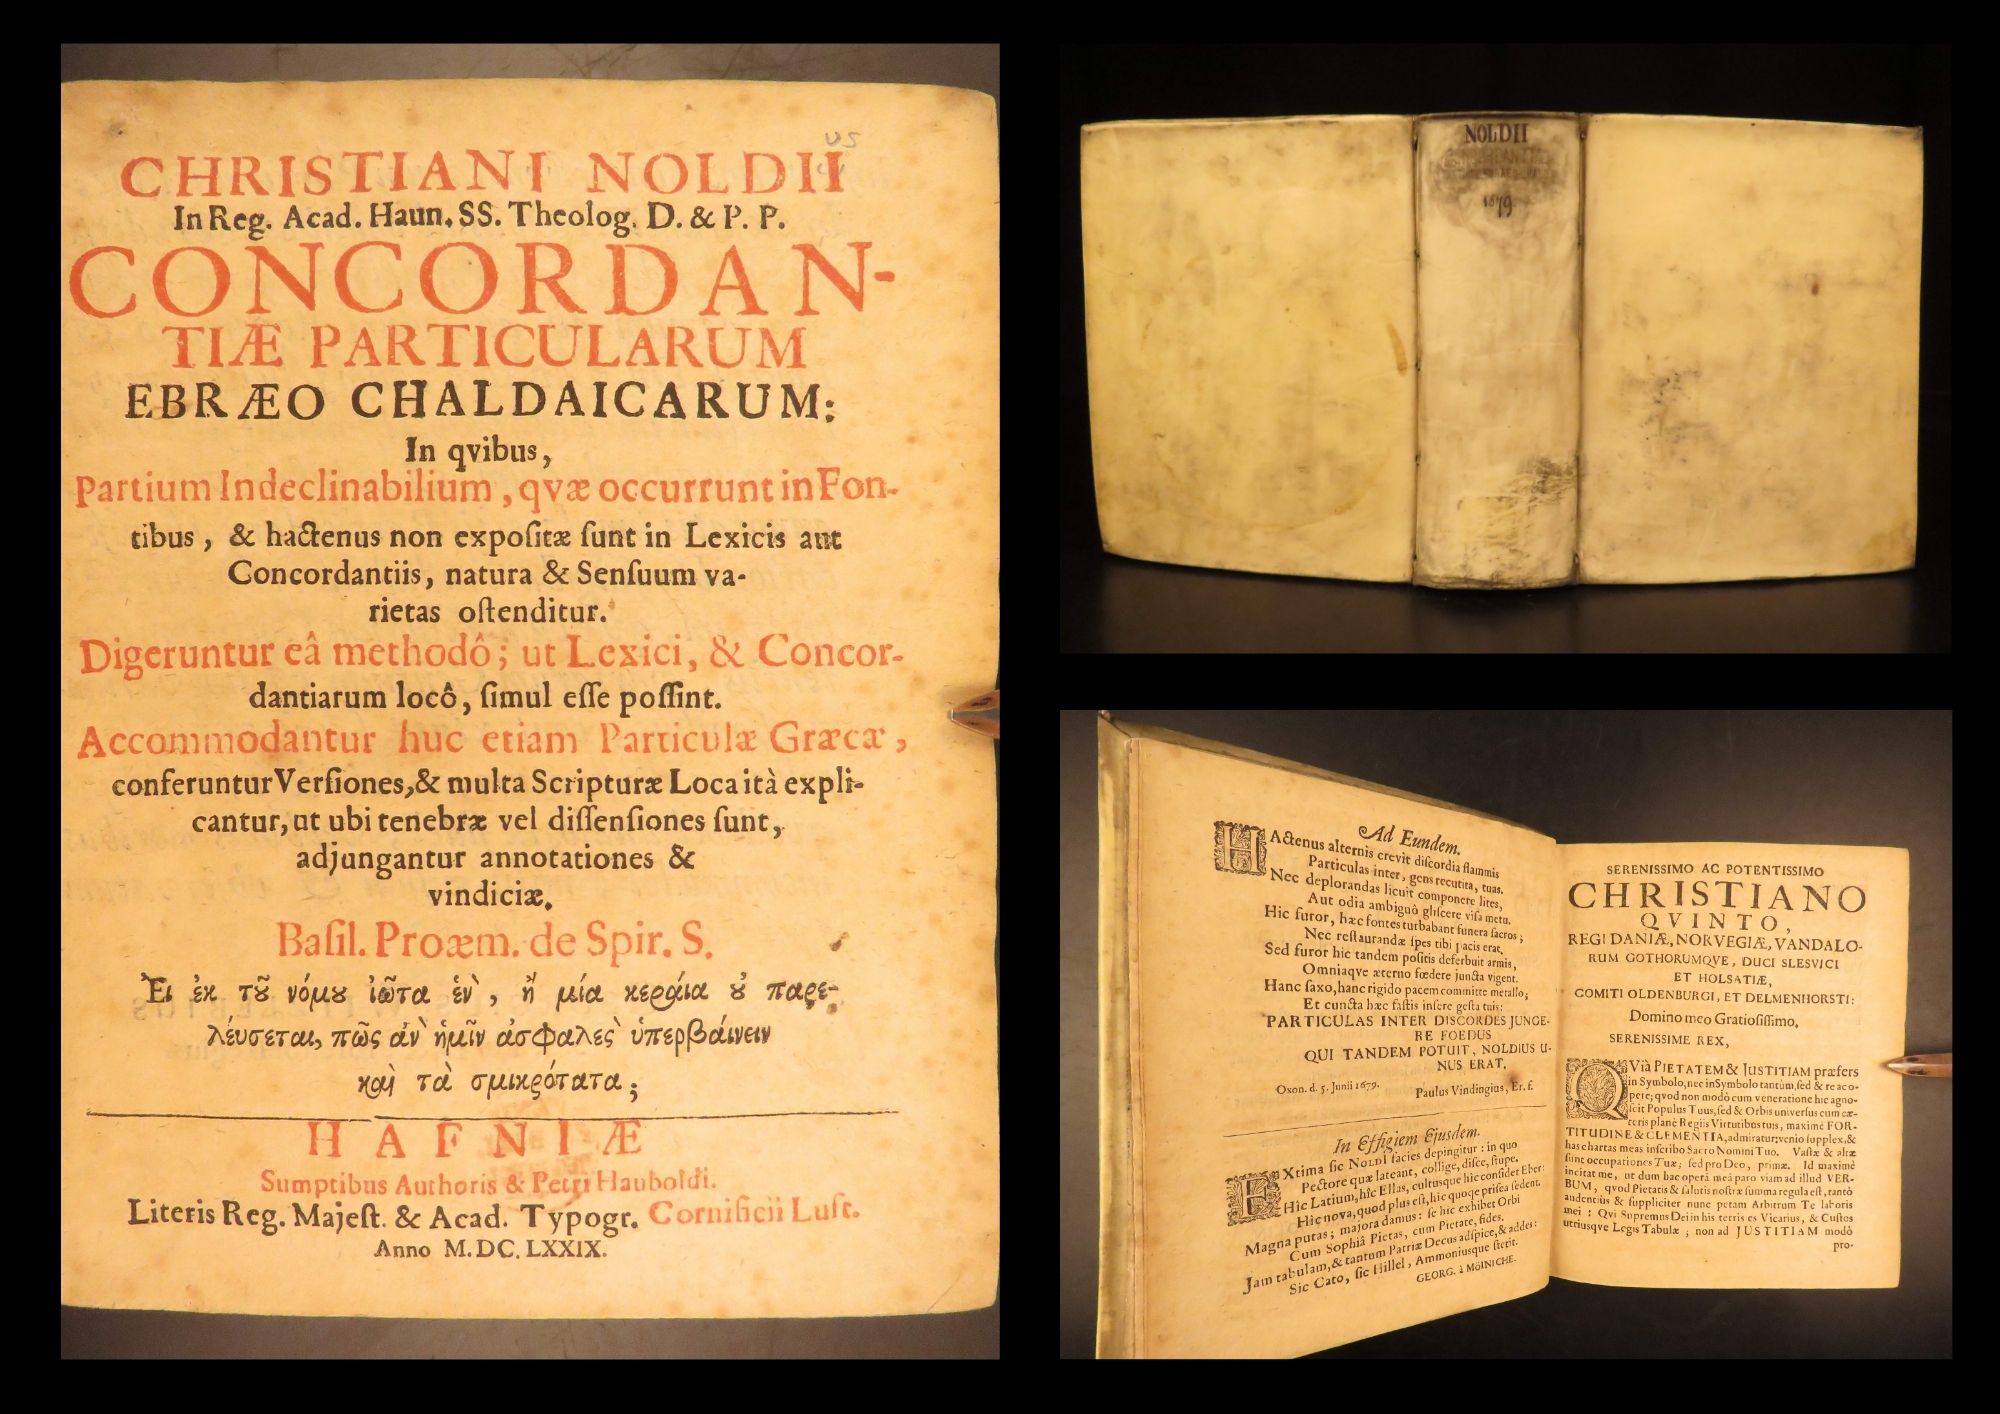 CHRISTIANI NOLDII
In Reg. Acad. Haun. SS. Theolog. D. & P. P.
CONCORDAN-
TIÆ PARTICULARUM
EBRÆO CHALDAICARUM:
In qvibus,
Partium Indeclinabilium, qvæ occurrunt in Fon-
tibus, & hactenus non expoſitæ ſunt in Lexicis aut
Concordantiis, natura & Senſuum va-
rietas oſtenditur.
Digeruntur eâ methodô; ut Lexici, & Concor-
dantiarum locô, ſimul eſſe poſſint.
Accommodantur huc etiam Particulæ Græcæ,
conferuntur Verſiones, & multa Scripturæ Loca ità expli-
cantur, ut ubi tenebræ vel diſſenſiones ſunt,
adjungantur annotationes &
vindiciæ.
Baſil. Proæm. de Spir. S.
Ει ἐκ τȣ͂ νόμȣ ἰῶτα ἑν̀, ἢ μία κεράια ȣ̓ παρε-
λέυσεται, πῶς ἀν̀ ἡμῖν ἀσφαλὲς ὑπερβάινειν
καὶ τὰ σμικρότατα;
HAFNIÆ
Sumptibus Authoris & Petri Hauboldi.
Literis Reg. Majeſt. & Acad. Typogr. Cornificii Luft.
Anno M.DC.LXXIX.
NOLDII
1679
Ad Eundem.
HActenus alternis crevit diſcordia flammis
Particulas inter, gens recutita, tuas.
Nec deplorandas licuit componere lites,
Aut odia ambiguô gliſcere viſa metu.
Hic furor, hæc fontes turbabant funera ſacros;
Nec reſtaurandæ ſpes tibi pacis erat.
Sed furor hic tandem poſitis deferbuit armis,
Omniaqve æterno fœdere juncta vigent.
Hanc ſaxo, hanc rigido pacem committe metallo;
Et cuncta hæc faſtis inſere geſta tuis:
PARTICULAS INTER DISCORDES JUNGE-
RE FOEDUS
QUI TANDEM POTUIT, NOLDIUS U-
NUS ERAT.
Oxon. d. 5. Junii 1679.
Paulus Vindingius, Er. f.
In Effigiem Ejusdem.
EXtima ſic NOLDI facies depingitur: in quo
Pectore quæ lateant, collige, diſce, ſtupe.
Hîc Latium, hîc Ellas, cultusque hîc conſidet Eber:
Hîc nova, quod plus eſt, hîc quoqe priſca ſedent.
Magna putas; majora damus: ſe hîc exhibet Orbi
Cum Sophiâ Pietas, cum Pietate, fides.
Jam tabulam, & tantum Patriæ Decus adſpice, & addes:
Sic Cato, ſic Hillel, Ammoniusque ſtetit.
GEORG. à MÖINICHE.
SERENISSIMO AC POTENTISSIMO
CHRISTIANO
QVINTO,
REGI DANIÆ, NORVEGIÆ, VANDALO-
RUM GOTHORUMQVE, DUCI SLESVICI
ET HOLSATIÆ,
COMITI OLDENBURGI, ET DELMENHORSTI:
Domino meo Gratioſiſſimo.
SERENISSIME REX,
QVià PIETATEM & JUSTITIAM præfers
in Symbolo, nec in Symbolo tantùm, ſed & re ac o-
pere; qvod non modò cum veneratione hic agno-
ſcit Populus Tuus, ſed & Orbis univerſus cum cæ-
teris planè Regiis Virtutibus tuis, maximè FOR-
TITUDINE & CLEMENTIA, admiratur; venio ſupplex, &
has chartas meas inſcribo Sacro Nomini Tuo. Vaſtæ & altæ
ſunt occupationes Tuæ; ſed pro Deo, primæ. Id maximè
incitat me, ut dum hac operâ meâ paro viam ad illud VER-
BUM, qvod Pietatis & ſalutis noſtræ ſumma regula eſt, tantò
audentiùs & ſuppliciter nunc petam Arbitrum Te laboris
mei: Qvi Supremus Dei in his terris es Vicarius, & Cuſtos
utriusqve Legis Tabulæ; non ad JUSTITIAM modò
pro-